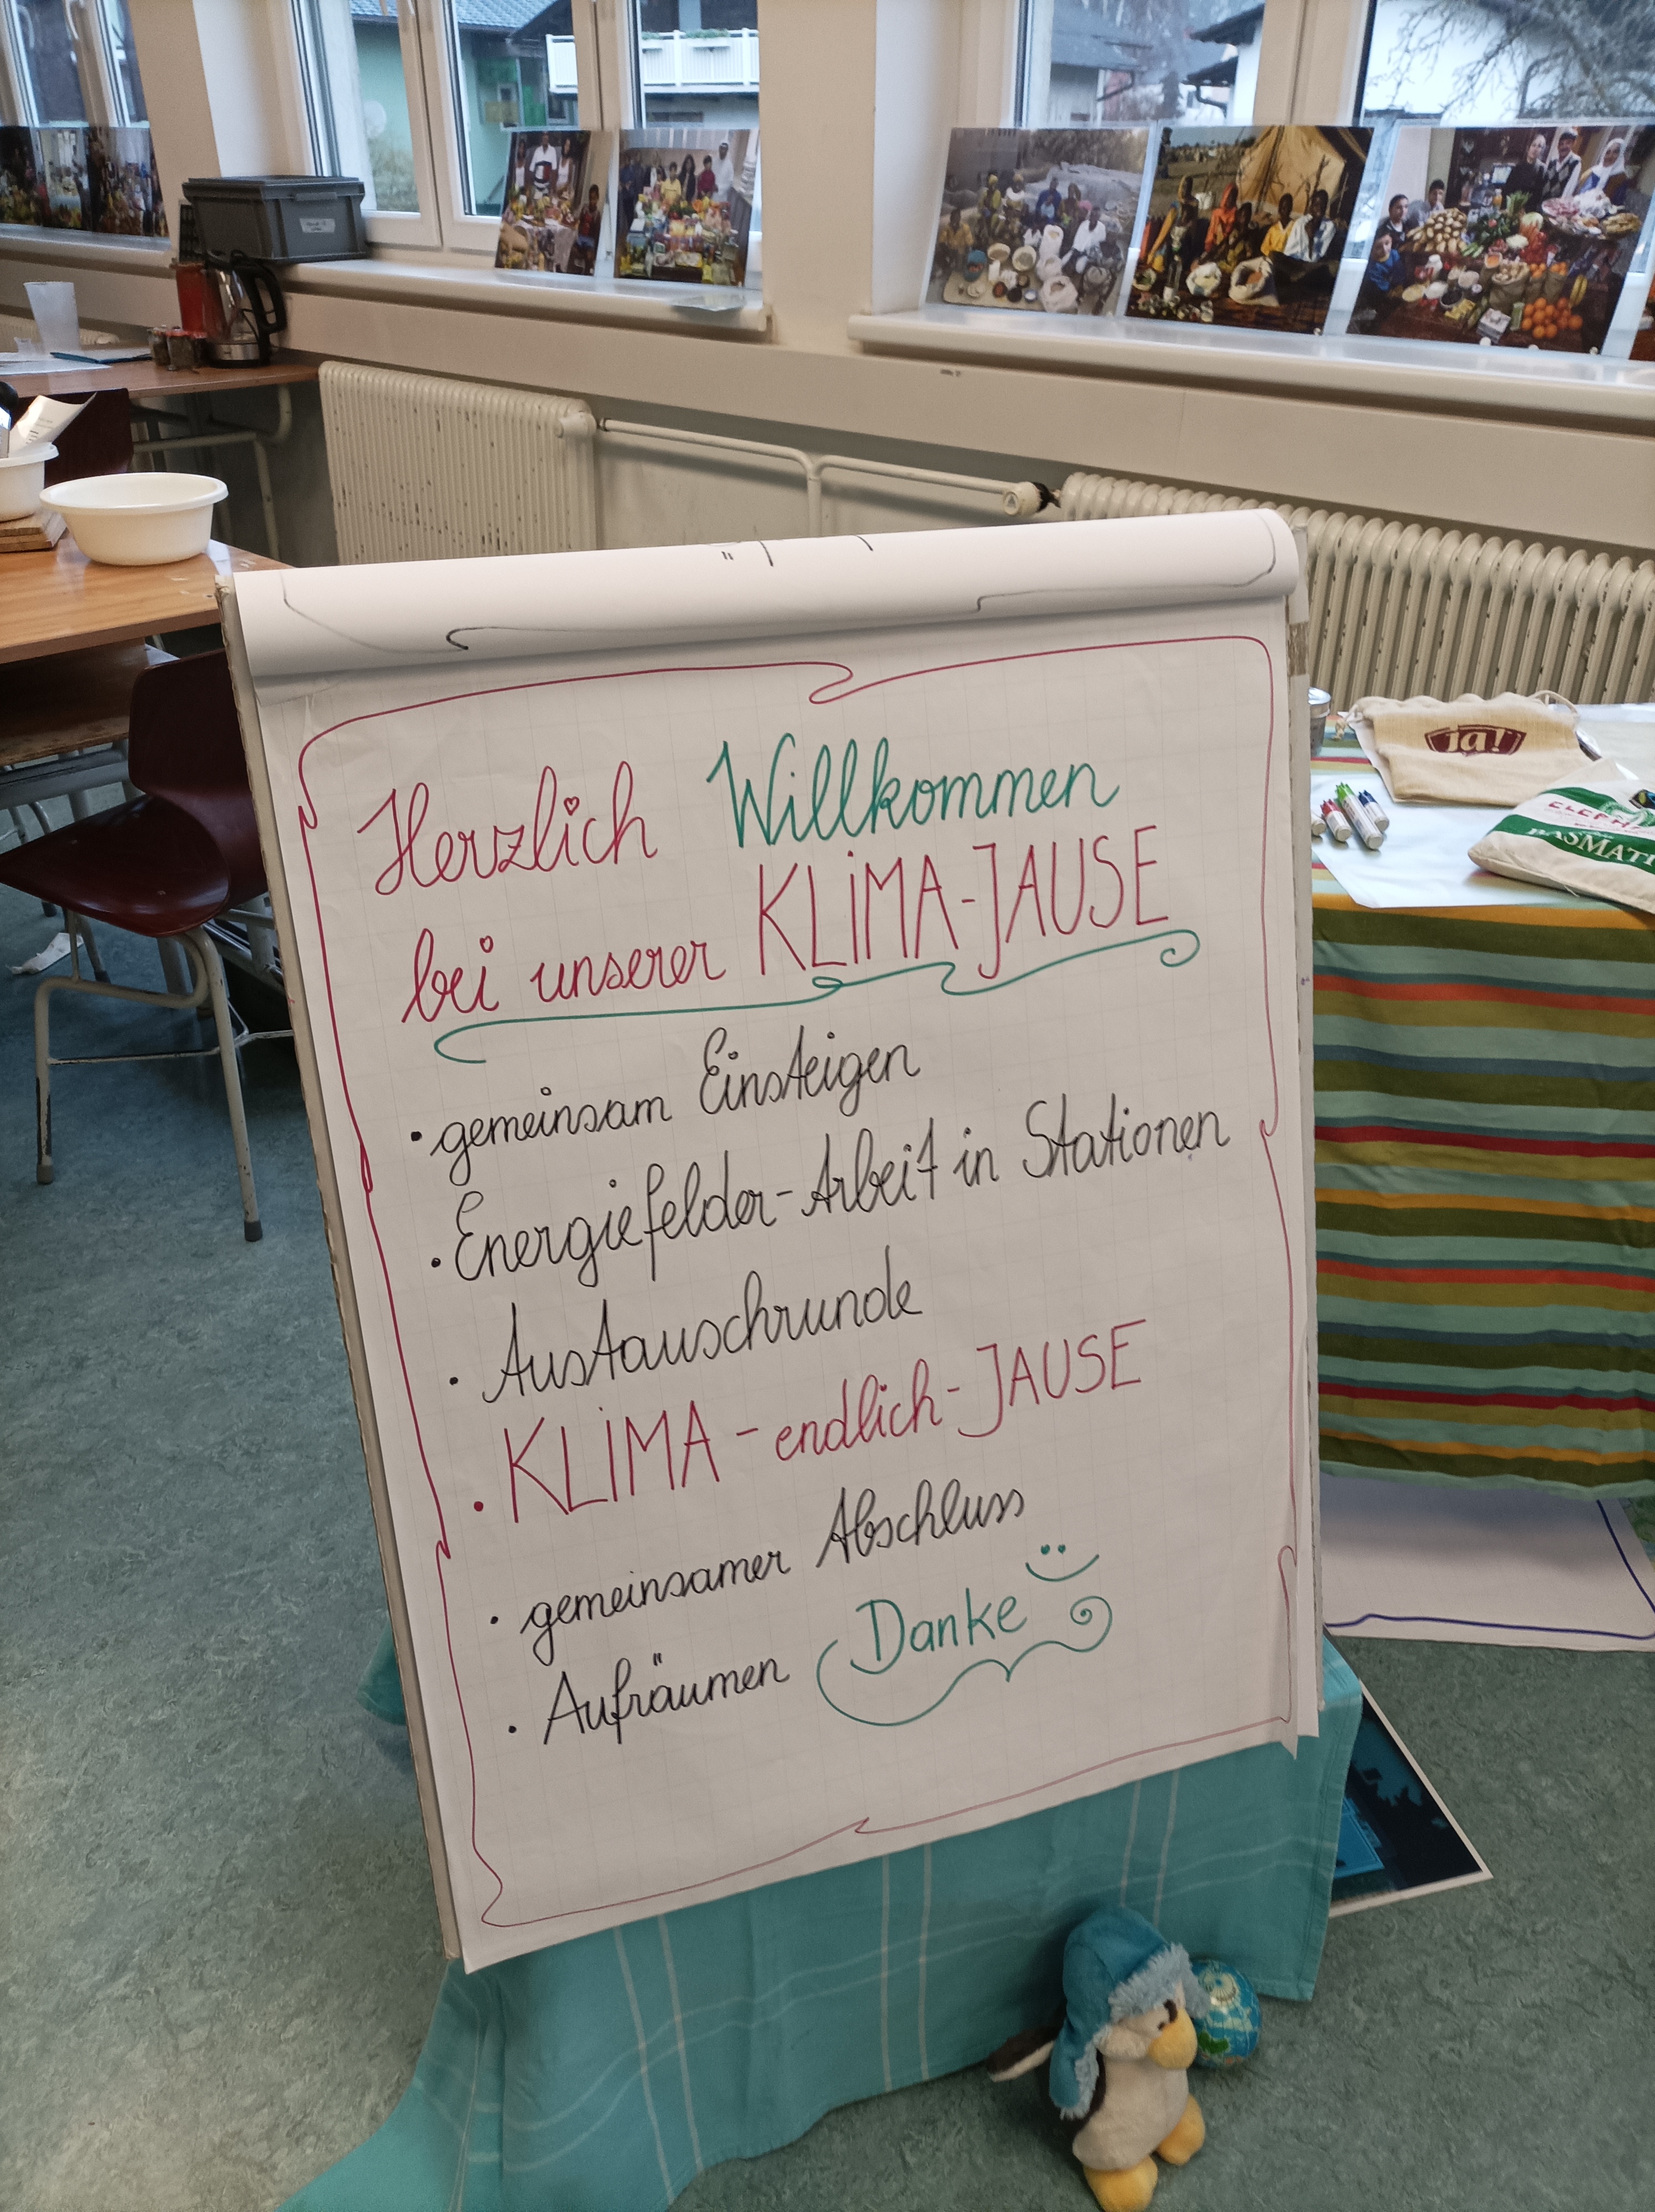 Herzlich Willkommen
bei unserer KLIMA-JAUSE
• gemeinsam Einsteigen
• Energiefelder-Arbeit in Stationen
• Austauschrunde
• KLIMA - endlich - JAUSE
• gemeinsamer Abschluss
• Aufräumen Danke
ja!
BASMATI